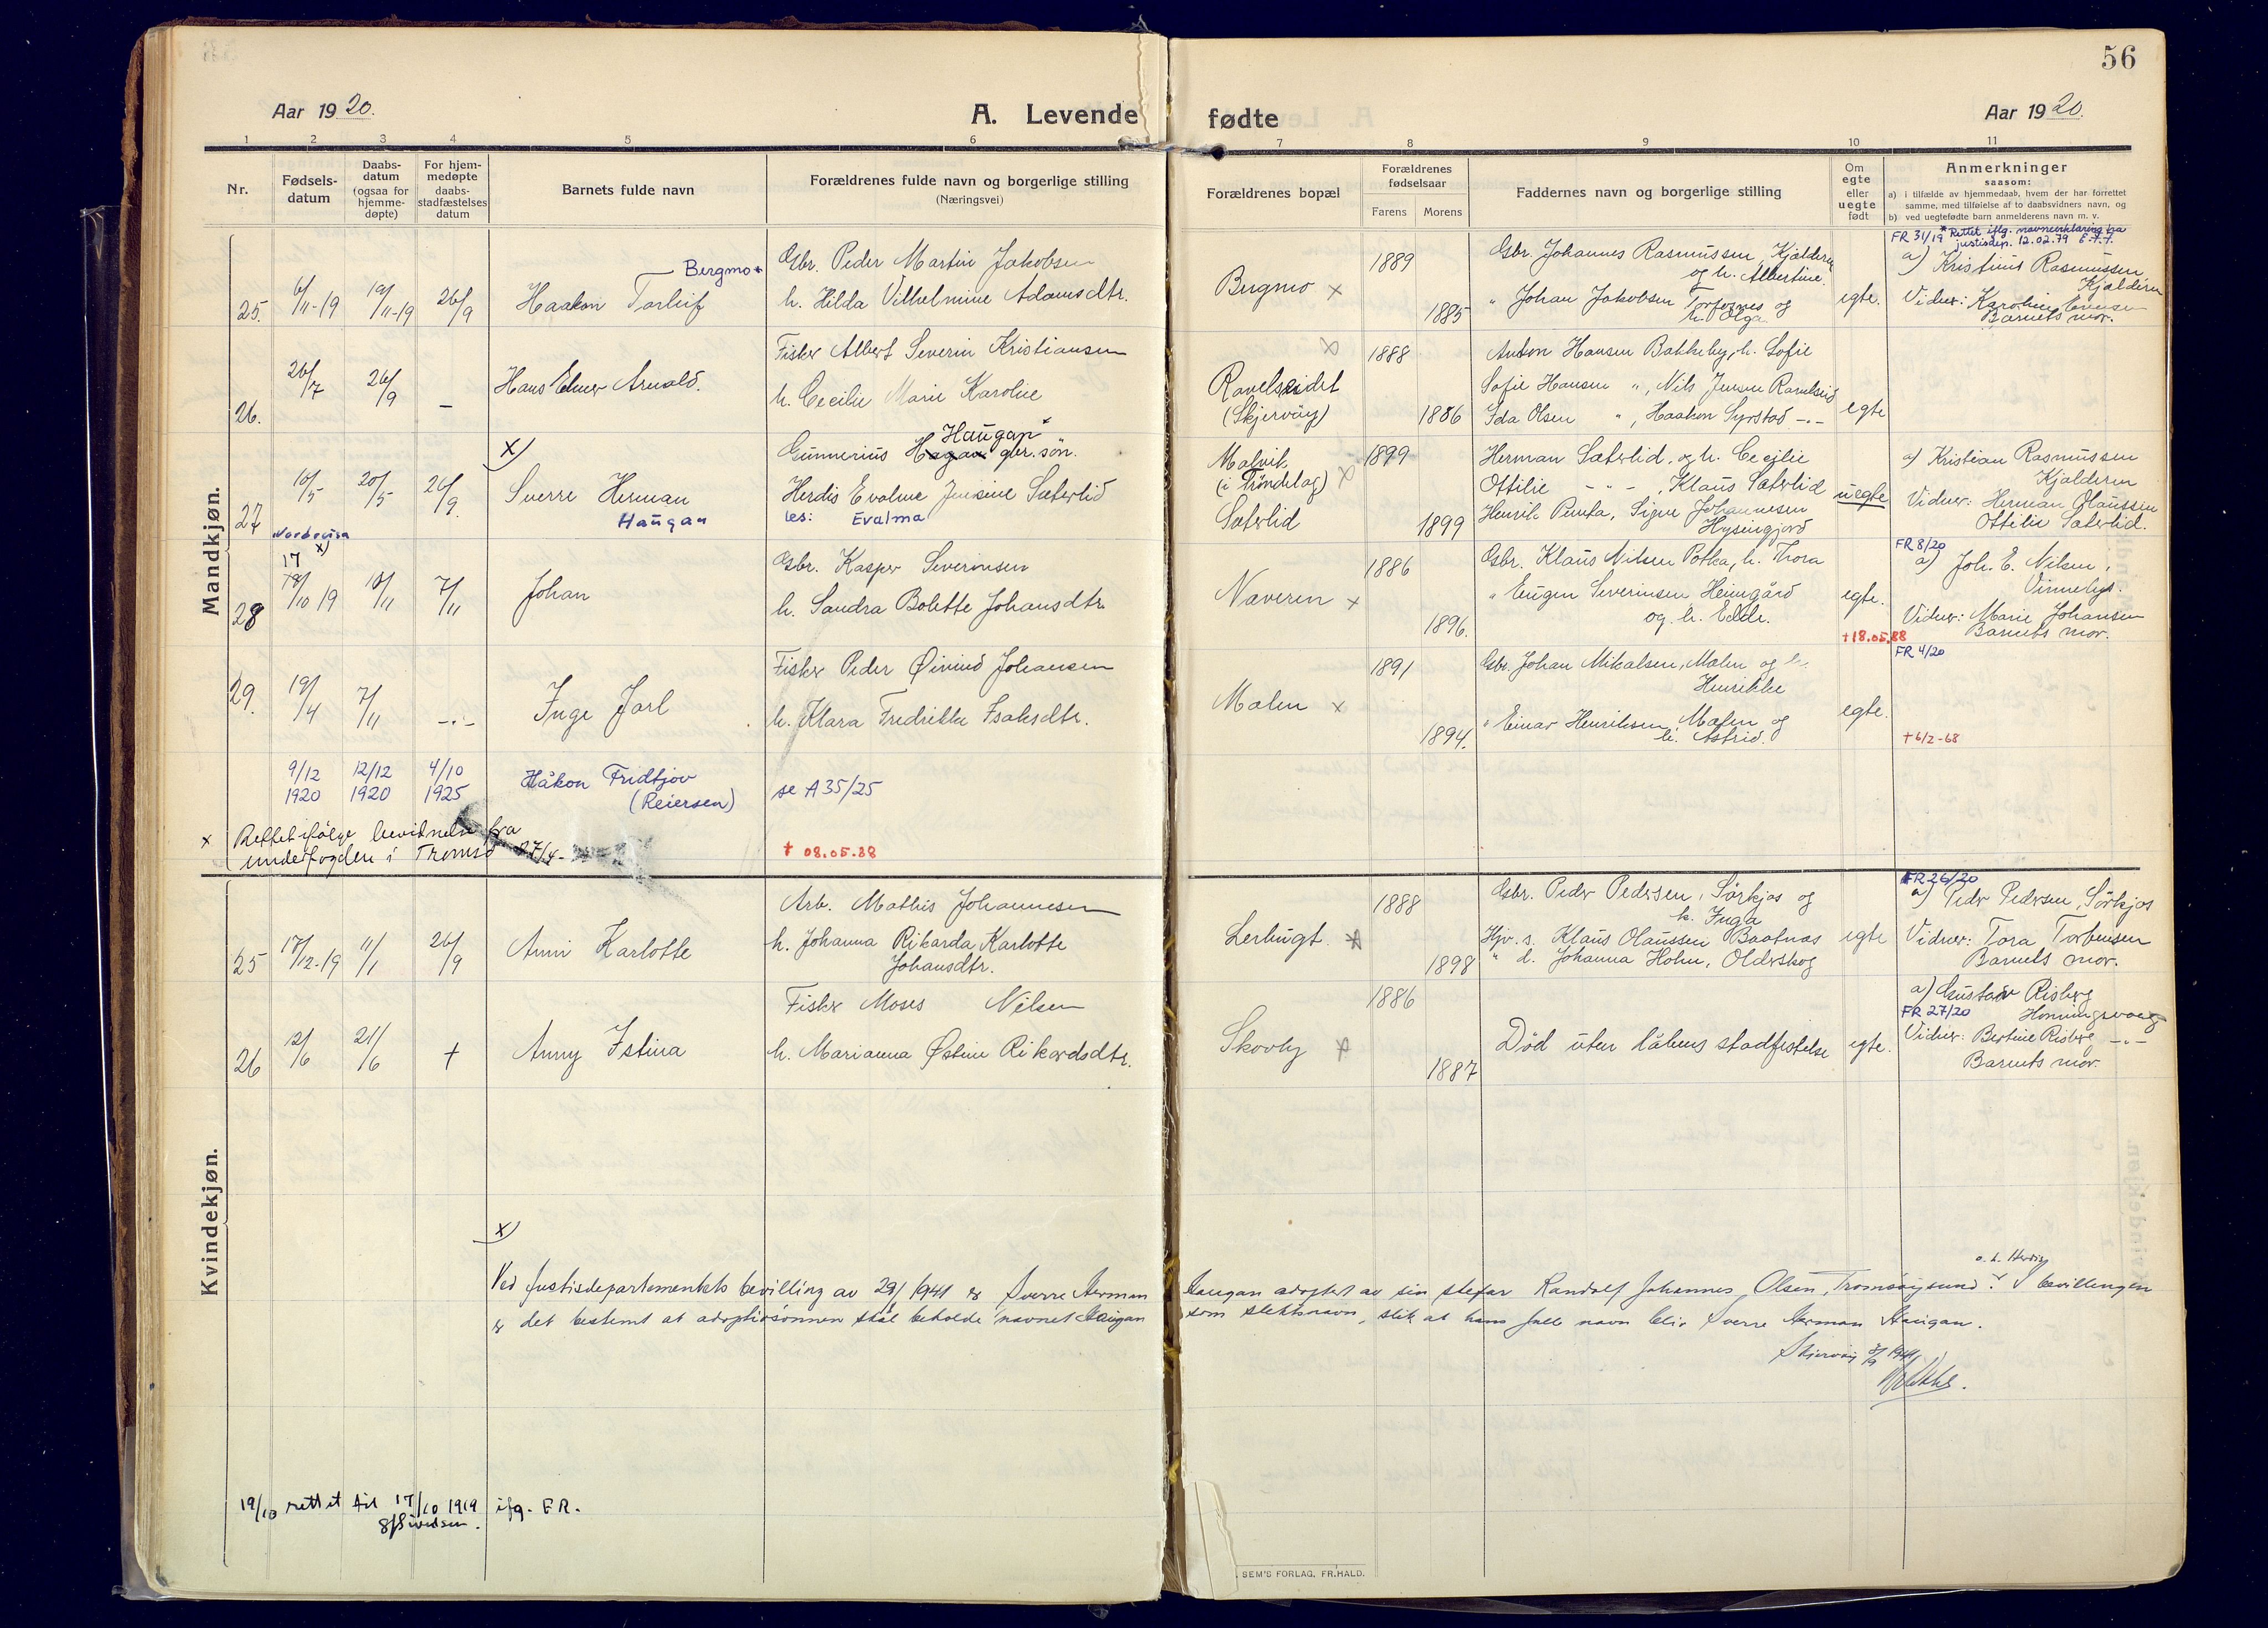 56
Aar 1920.
A. Levende
fødte
Aar 1920.
1 2 3 4 5 6
7 8 9 10 11
Nr.
Fødsels-
datum
Daabs-
datum
(ogsaa for
hjemme-
døpte)
For hjem-
medøpte
daabs-
stadfæstelses
datum
Barnets fulde navn
Forældrenes fulde navn og borgerlige stilling
(Næringsvei)
Forældrenes bopæl
Forældrenes
fødselsaar
Farens Morens
Faddernes navn og borgerlige stilling
Om
egte
eller
uegte
født
Anmerkninger
saasom:
a) i tilfælde av hjemmedaab, hvem der har forrettet
samme, med tilføielse af to daabsvidners navn, og
b) ved uegtefødte barn anmelderens navn m. v.
Mandkjøn.
FR 31/19 * Rettet iflg. navneerklæring fra
justisdep. 12.02.79 E.F.F.
25. 6/11-19 19/11-19 26/9
Bergmo*
Haakon Torleif
Gbr. Peder Martin Jakobsen
h. Hilda Vilhelmine Adamsdtr.
Bugmo x
1889
1885
Gbr. Johannes Rasmussen, Kjelderen
og h. Albertine.
" Johan Jakobsen Torfosnes og
h. Olga
egte.
a) Kristinus Rasmussen
Kjelderen
Vidner: Karoline
Barnets mor.
26. 26/7 26/9 –
Hans Elmer Arnold.
Fisker Albert Severin Kristiansen
h. Cecilie Marie Karoline
Ravelseidet
(Skjervøy)
1888
1886
Anton Hansen Bakkeby, h. Sofie
Sofie Hansen ", Nils Jensen Ravelseid
Ida Olsen ", Haakon Syrstad -"-
egte
27 10/5 20/5 26/9.
Nordreisa
x)
Sverre Herman
Haugan
Haugan
Gunnerius Hagan gbr. søn.
Herdis Evalme Jensine Sæterlid
les: Evalma
Malvik
(i Trøndelag)
Sæterlid
1899
1899
Herman Sæterlid, og h. Cecilie
Ottilie - " - , Klaus Sæterlid
Henrik Penta, Signe Johannesen
Hysingjord
uegte
a) Kristian Rasmussen
Kjelderen
Vidner: Herman Olaussen
Ottilie Sæterlid.
28 17 x)
19/10 19 10/11 7/11
Johan
Gbr. Kasper Severinsen
h. Sandra Bolette Johansdtr.
Naveren x
1886
1896.
Gbr. Klaus Nilsen Potka, h. Thora
" Eugen Severinsen Heimgård
og h. Edle.
egte.
† 18.05.88
FR 8/20
a) Joh. E. Nilsen,
Vinnelys.
Vidner: Marie Johansen
Barnets mor.
29. 19/4 7/11 -"-
Inge Jarl
Fisker Peder Øivind Johansen
h. Klara Fredrikke Isaksdtr.
Malen x
1891
1894.
Gbr. Johan Mikalsen, Malen og h.
Henrikke
" Einar Henriksen, Malen og
h. Astrid.
egte.
FR 4/20
† 6/2-68
9/12 1920 12/12 1920 4/10 1925
Håkon Fridtjov
(Reiersen)
se A 35/25
x Rettet ifølge bevitnelse fra
underfogden i Tromsø 27/4-
† 08.05.88
Kvindekjøn.
25 17/12-19 11/1 26/9
Anni Karlotte
Arb. Mathis Johannesen
h. Johanna Rikarda Karlotte
Johansdtr.
Lerbugt
1888
1898
Gbr. Peder Pedersen, Sørkjos og
h. Inga
Hjv. s. Klaus Olaussen Baatnes
" d. Johanna Holm, Olderskog
egte
FR 26/20
a) Peder Pedersen, Sørkjos
Vidner: Tora Torbensen
Barnets mor.
26 12/6 21/6 †
Anny Istina
Fisker Moses Nilsen
h. Marianna Østine Rikardsdtr.
Skovly
1886
1887
Død uten dåbens stadfestelse
egte.
a) Gustav Risberg
FR 27/20 Honningsvaag
Vidner: Bertine Risberg -"-
Barnets mor.
x)
Ved Justisdepartementets bevilling av 29/1 1941 er Sverre Herman Haugan adoptert av sin stefar Randolf Johannes Olsen, Tromsøysund. I bevillingen
o. h. Herdis
er det bestemt at adoptivsønnen skal beholde navnet Haugan som slektsnavn, slik at hans fulle navn blir Sverre Herman Haugan.
Skjervøy 3/9 1941
19/10 rettet til 17/10 1919 ifg. F.R.
SEM'S FORLAG, FR.HALD.